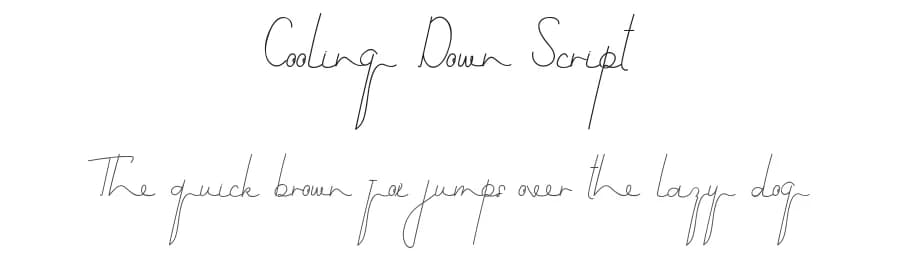 Cooling Down Script
The quick brown fox jumps over the lazy dog